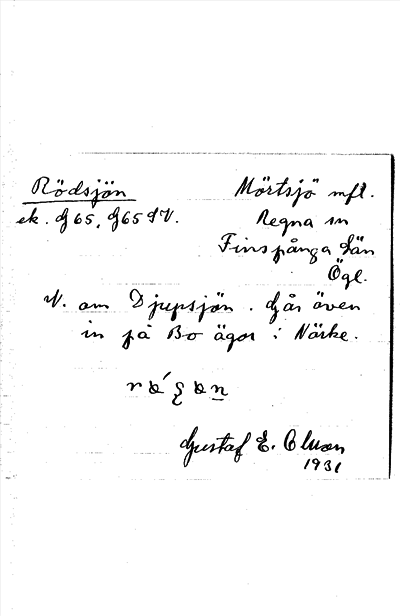 Rödsjön
Mörtsjö mfl.
ek. G65, G65 SV.
Regna sn
Finspånga län
Ögl.
V. om Djupsjön. Går även
in på Bo ägor i Närke.
Gustaf E. Olsson
1931